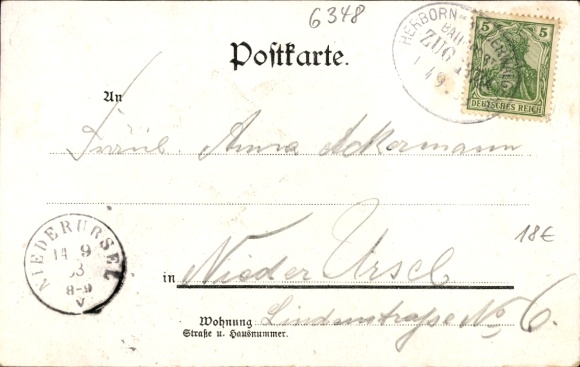 6348
Postkarte.
HERBORN-
BAHNPOST
ZUG
49.
5 5
DEUTSCHES REICH
An
Fräul. Anna Ackermann
NIEDERURSEL
14 9
03
8-9
V
18€
in Nieder Ursel
Wohnung
Straße u. Hausnummer.
Lindenstraße No 6.